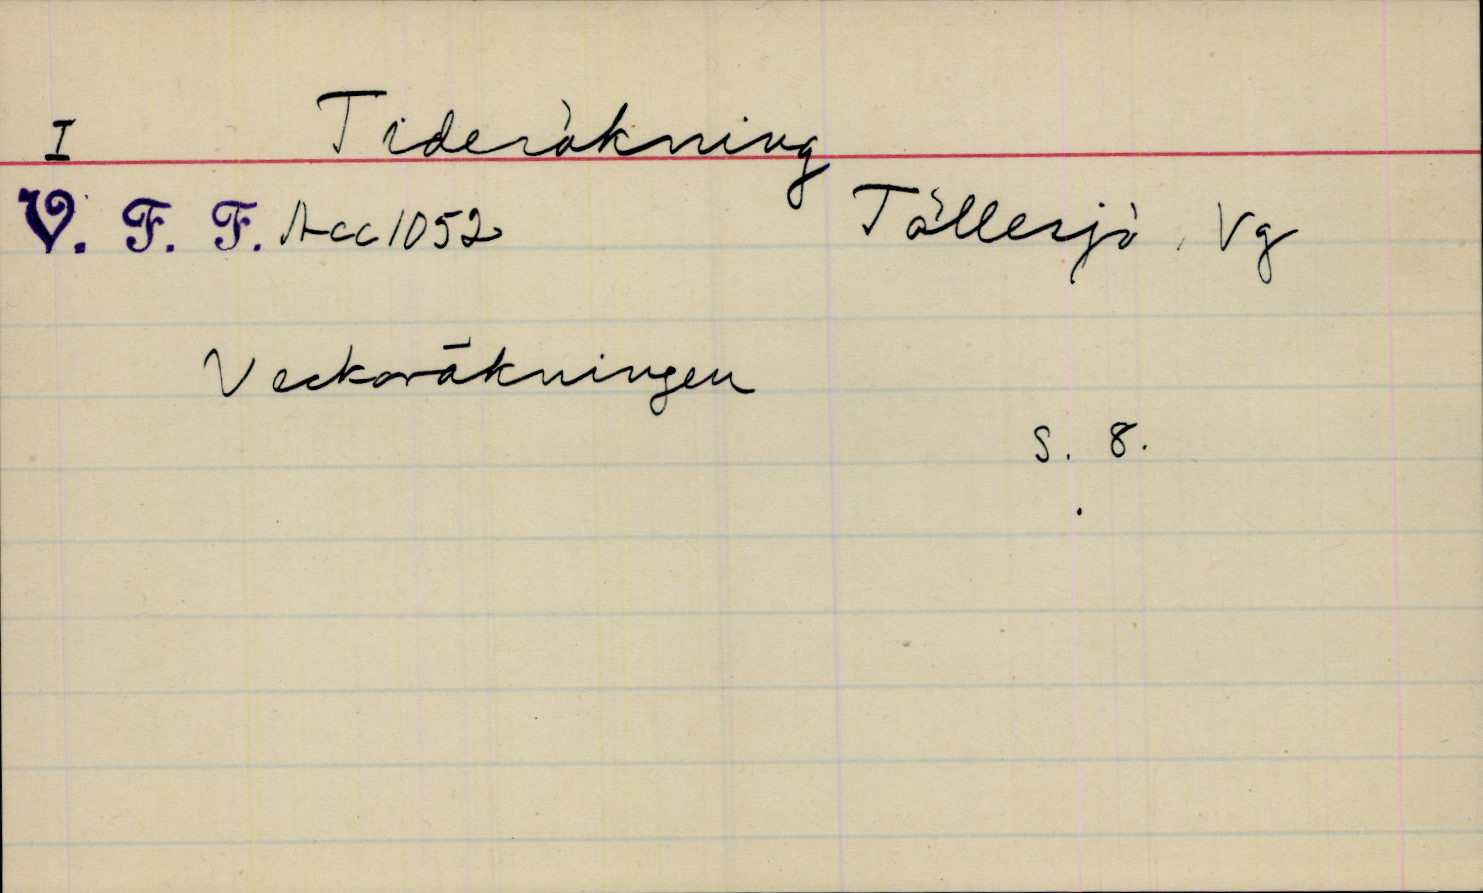 I Tideräkning
V. F. F. Acc 1052 Töllesjö, Vg
Veckoräkningen
s. 8.